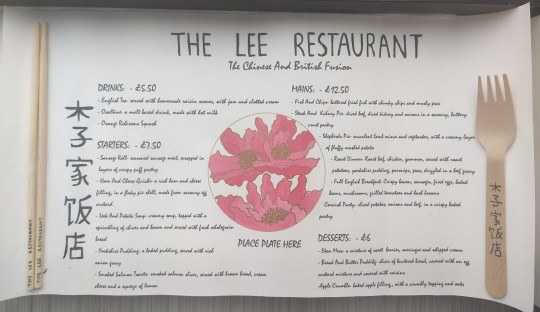 THE LEE RESTAURANT
The Chinese And British Fusion
DRINKS: - £5.50
- English Tea: served with homemade raisin scones, with jam and clotted cream
- Ovaltine: a malt based drink, made with hot milk
- Orange Robinsons Squash
STARTERS: - £7.50
- Sausage Roll: seasoned sausage meat, wrapped in
layers of crispy puff pastry
- Ham And Cheese Quiche: a rich ham and cheese
filling, in a flaky pie shell, made from savoury egg
custard
- Leek And Potato Soup: creamy soup, topped with a
sprinkling of chives and bacon and served with fresh wholegrain
bread
- Yorkshire Pudding: a baked pudding, served with rich
onion gravy
- Smoked Salmon Toasts: smoked salmon slices, served with brown bread, cream
cheese and a squeeze of lemon
木子家饭店
PLACE PLATE HERE
MAINS: - £12.50
- Fish And Chips: battered fried fish with chunky chips and mushy peas
- Steak And Kidney Pie: diced beef, diced kidney and onions in a savoury, buttery
crust pastry
- Shepherds Pie: succulent lamb mince and vegetables, with a creamy layer
of fluffy mashed potato
- Roast Dinner: Roast beef, chicken, gammon, served with roast
potatoes, yorkshire pudding, parsnips, peas, drizzled in a beef gravy
- Full English Breakfast: Crispy bacon, sausages, fried eggs, baked
beans, mushrooms, grilled tomatoes and hash browns
Cornish Pasty: diced potatoes, onions and beef, in a crispy baked
pastry
DESSERTS: - £6
- Eton Mess: a mixture of sweet berries, meringue and whipped cream
- Bread And Butter Pudding: slices of buttered bread, covered with an egg
custard mixture and covered with raisins
Apple Crumble: baked apple filling, with a crumbly topping and oats
THE LEE RESTAURANT
THE LEE RESTAURANT
木子家饭店